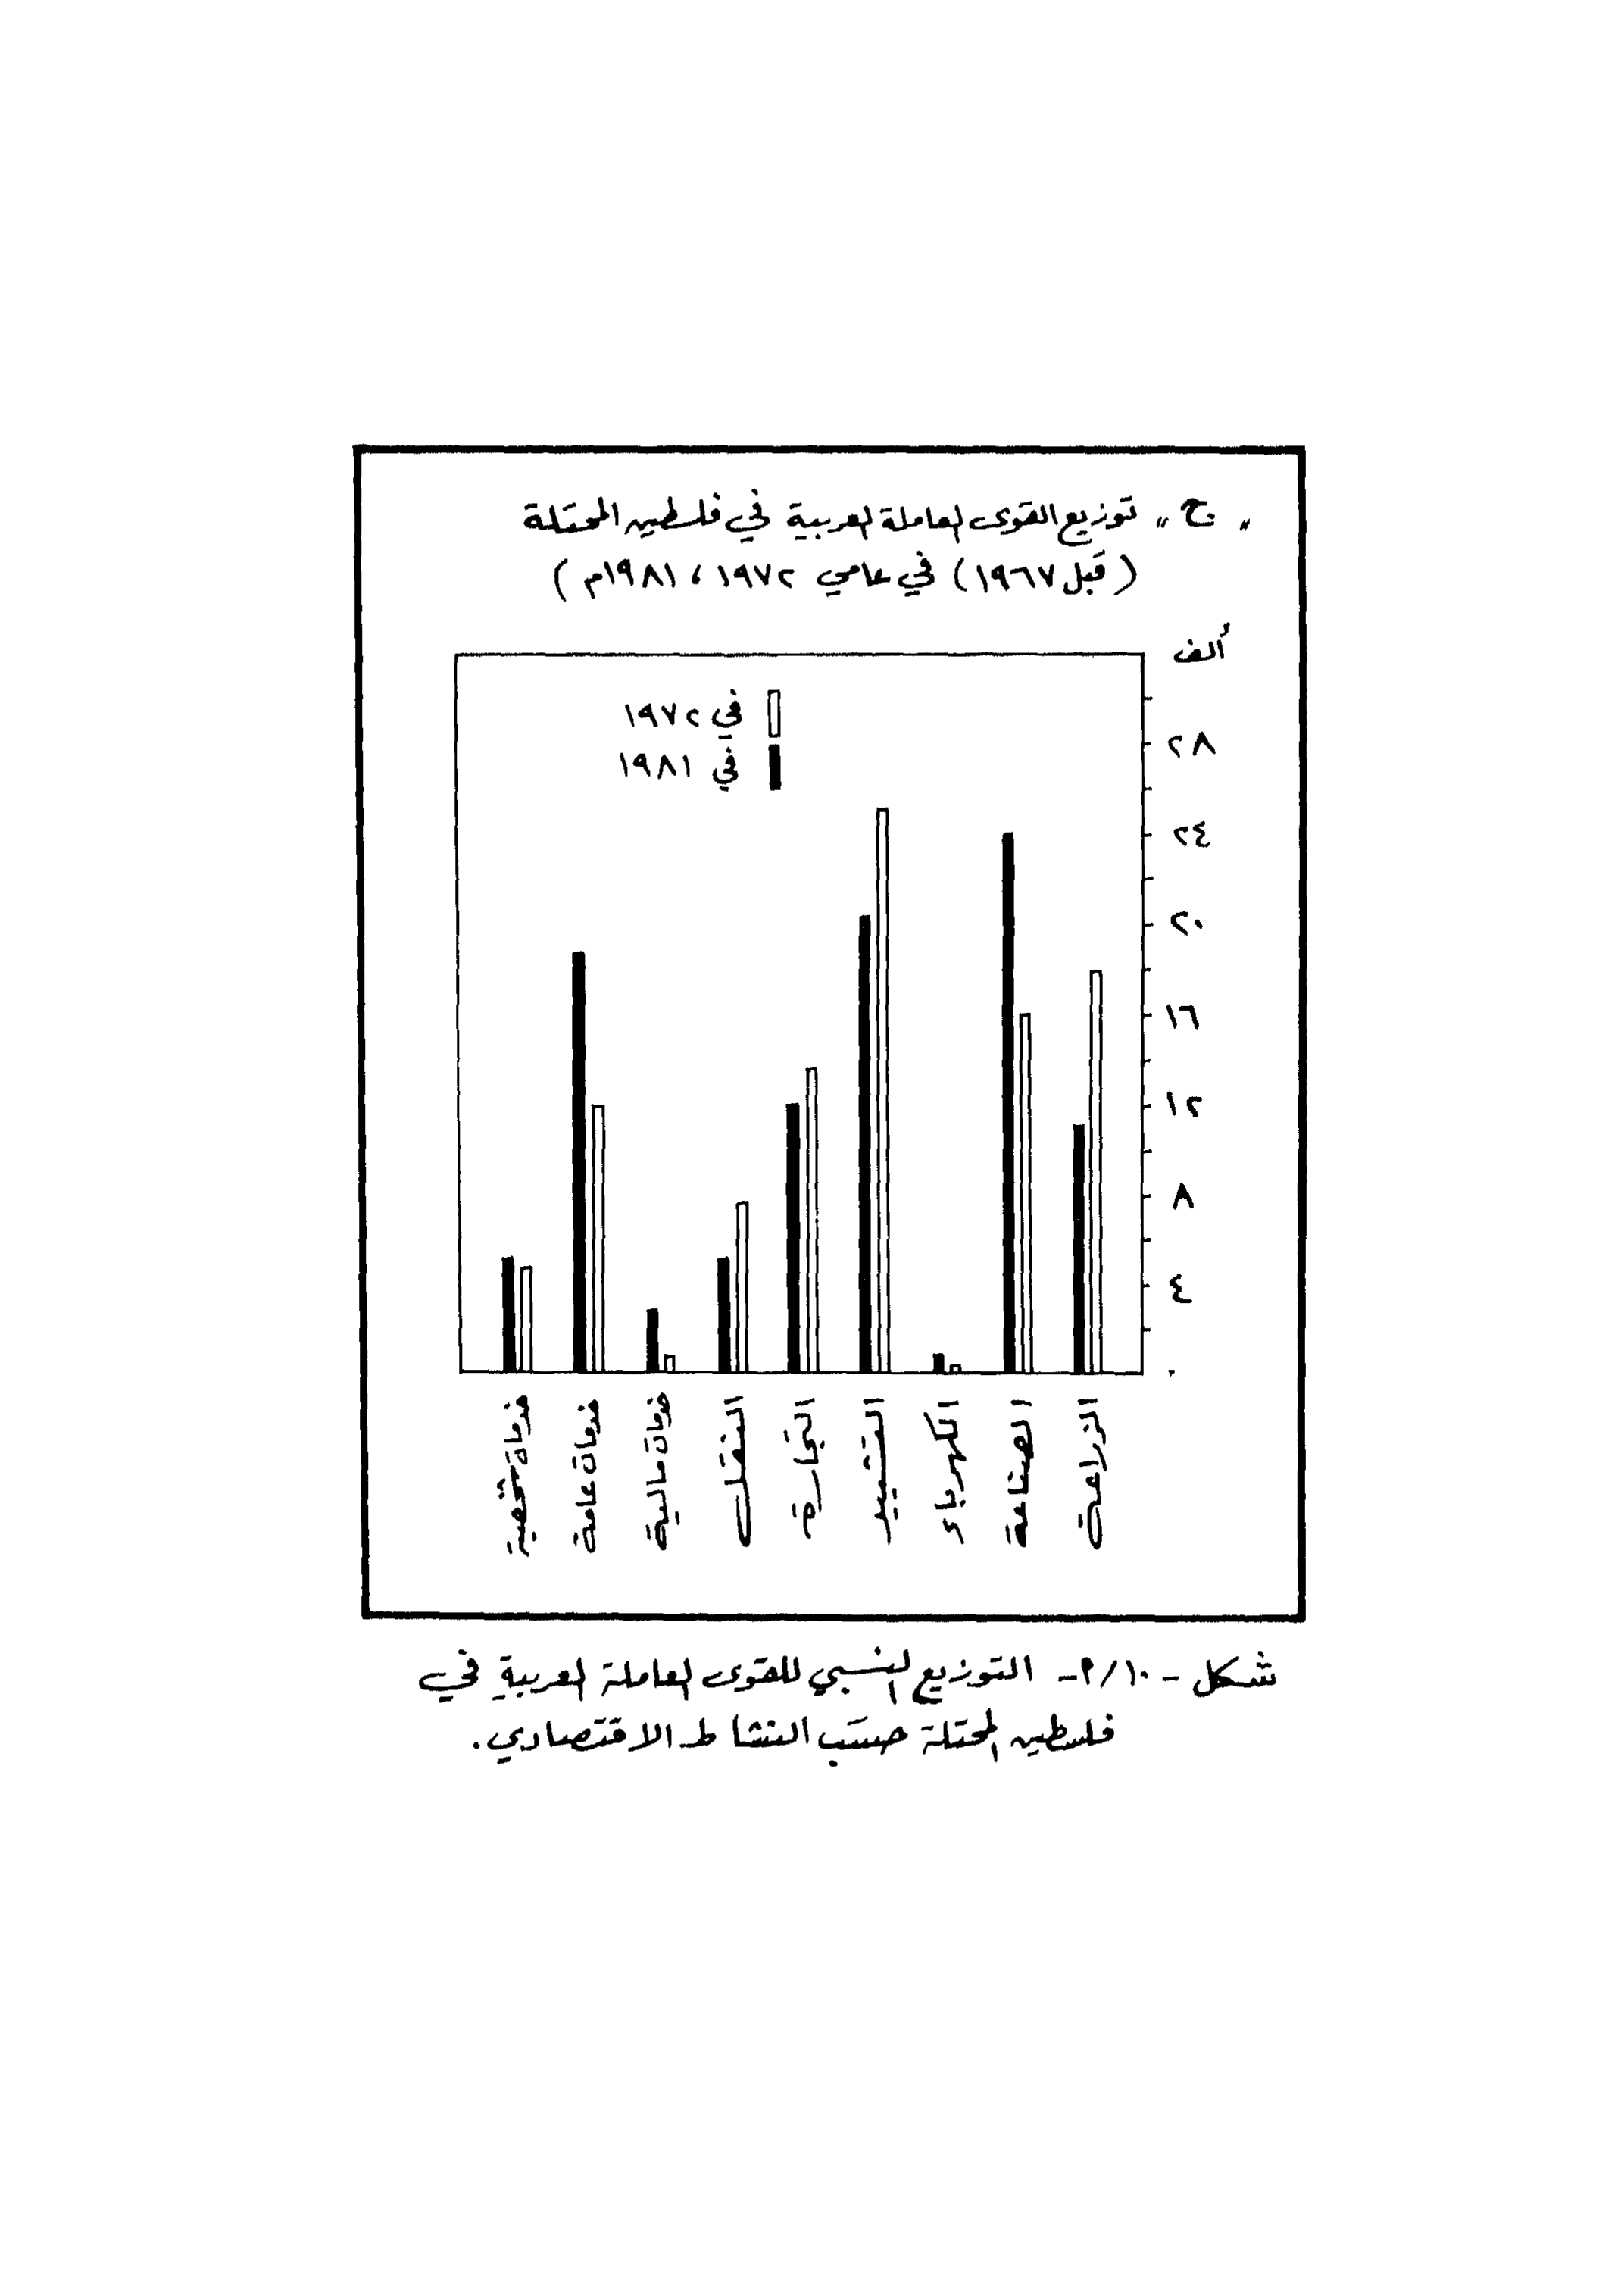 "ج" توزيع القوى العاملة العربية في فلسطين المحتلة
(قبل ١٩٦٧) في عامي ١٩٧٢ ، ١٩٨١م)
ألف
في ١٩٧٢
في ١٩٨١
٢٨
٢٤
٢٠
١٦
١٢
٨
٤
٠
الزراعة
الصناعة
الكهرباء
التشييد
التجارة
النقل
خدمات مالية
خدمات عامة
خدمات شخصية
شكل - ٩/١٠- التوزيع النسبي للقوى العاملة العربية في
فلسطين المحتلة حسب النشاط الاقتصادي.